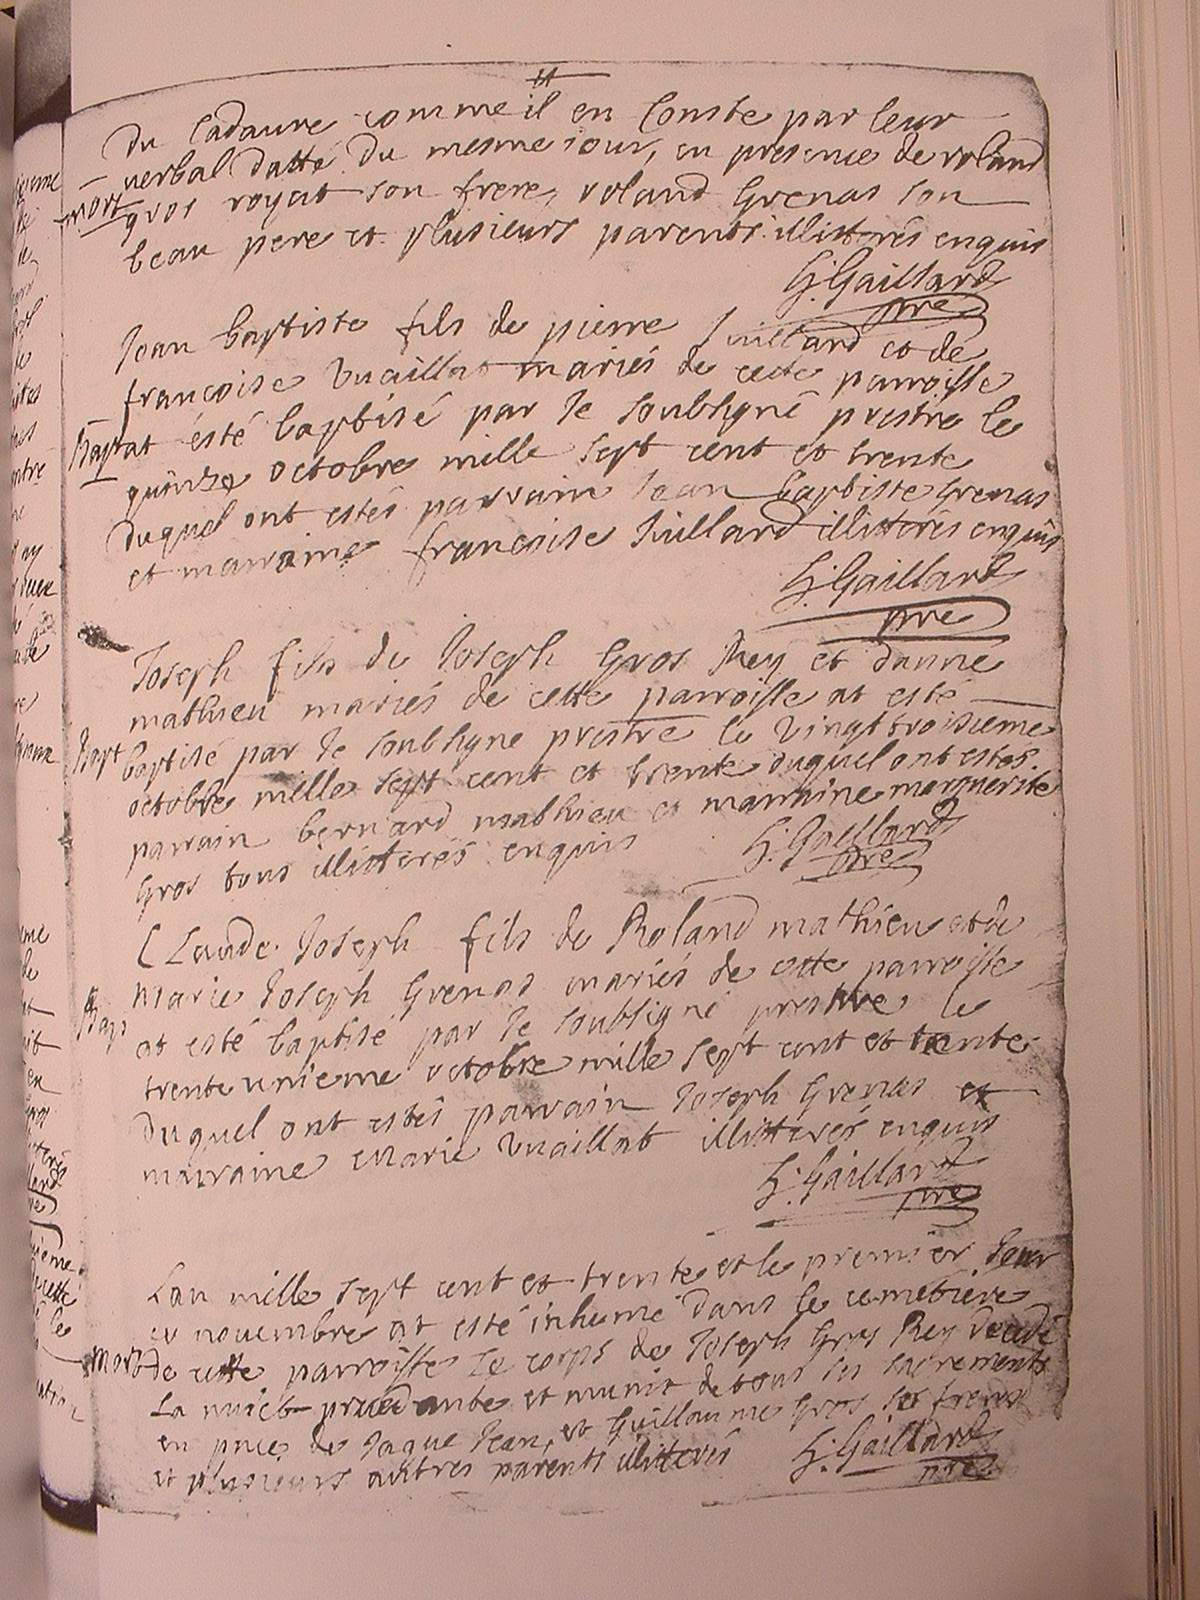 et
du Cadavre comme il en Conste par leur
verbal datté du mesme iour, en presence de roland
mort
gros royat son frere, roland Grenas son
beau pere et plusieurs parents illitterés enquis
Gaillard
pre
Jean baptiste fils de pierre Juillard et de
françoise Vuaillat mariés de cette parroisse
Bapt
at ésté baptisé par Je soubsigné prestre le
quinze octobre mille sept cent et trente
duquel ont estés parrain Jean baptiste Grenas
et marraine francoise Juillard illitterés enquis
Gaillard
pre
Joseph fils de Joseph Gros Rey et d'anne
mathieu mariés de cette parroisse at esté
Bapt
baptisé par Je soubsigne prestre le vingt troisieme
octobre mille sept cent et trente duquel ont estés
parrain bernard mathieu et marraine marguerite
Gros tous illitterés enquis
Gaillard
pre
Claude Joseph fils de Roland mathieu et de
Marie Joseph Grenas mariés de cette parroisse
Bap
at esté baptisé par Je soubsigné prestre le
trente unieme octobre mille sept cent et trente
Duquel ont estés parrain Joseph Grenas et
marraine Marie Vuaillat illitterés enquis
Gaillard
pre
Lan mille sept cent et trente et le premier Jour
ey novembre at esté inhumé dans le cemetiere
mort
de cette parroisse Le corps de Joseph Gros Rey decedé
La nuict et munit de tous ses sacrements
en de Jaque Jean, et Guillaume Gros ses freres
et plusieurs autres parents illitterés
Gaillard
pre